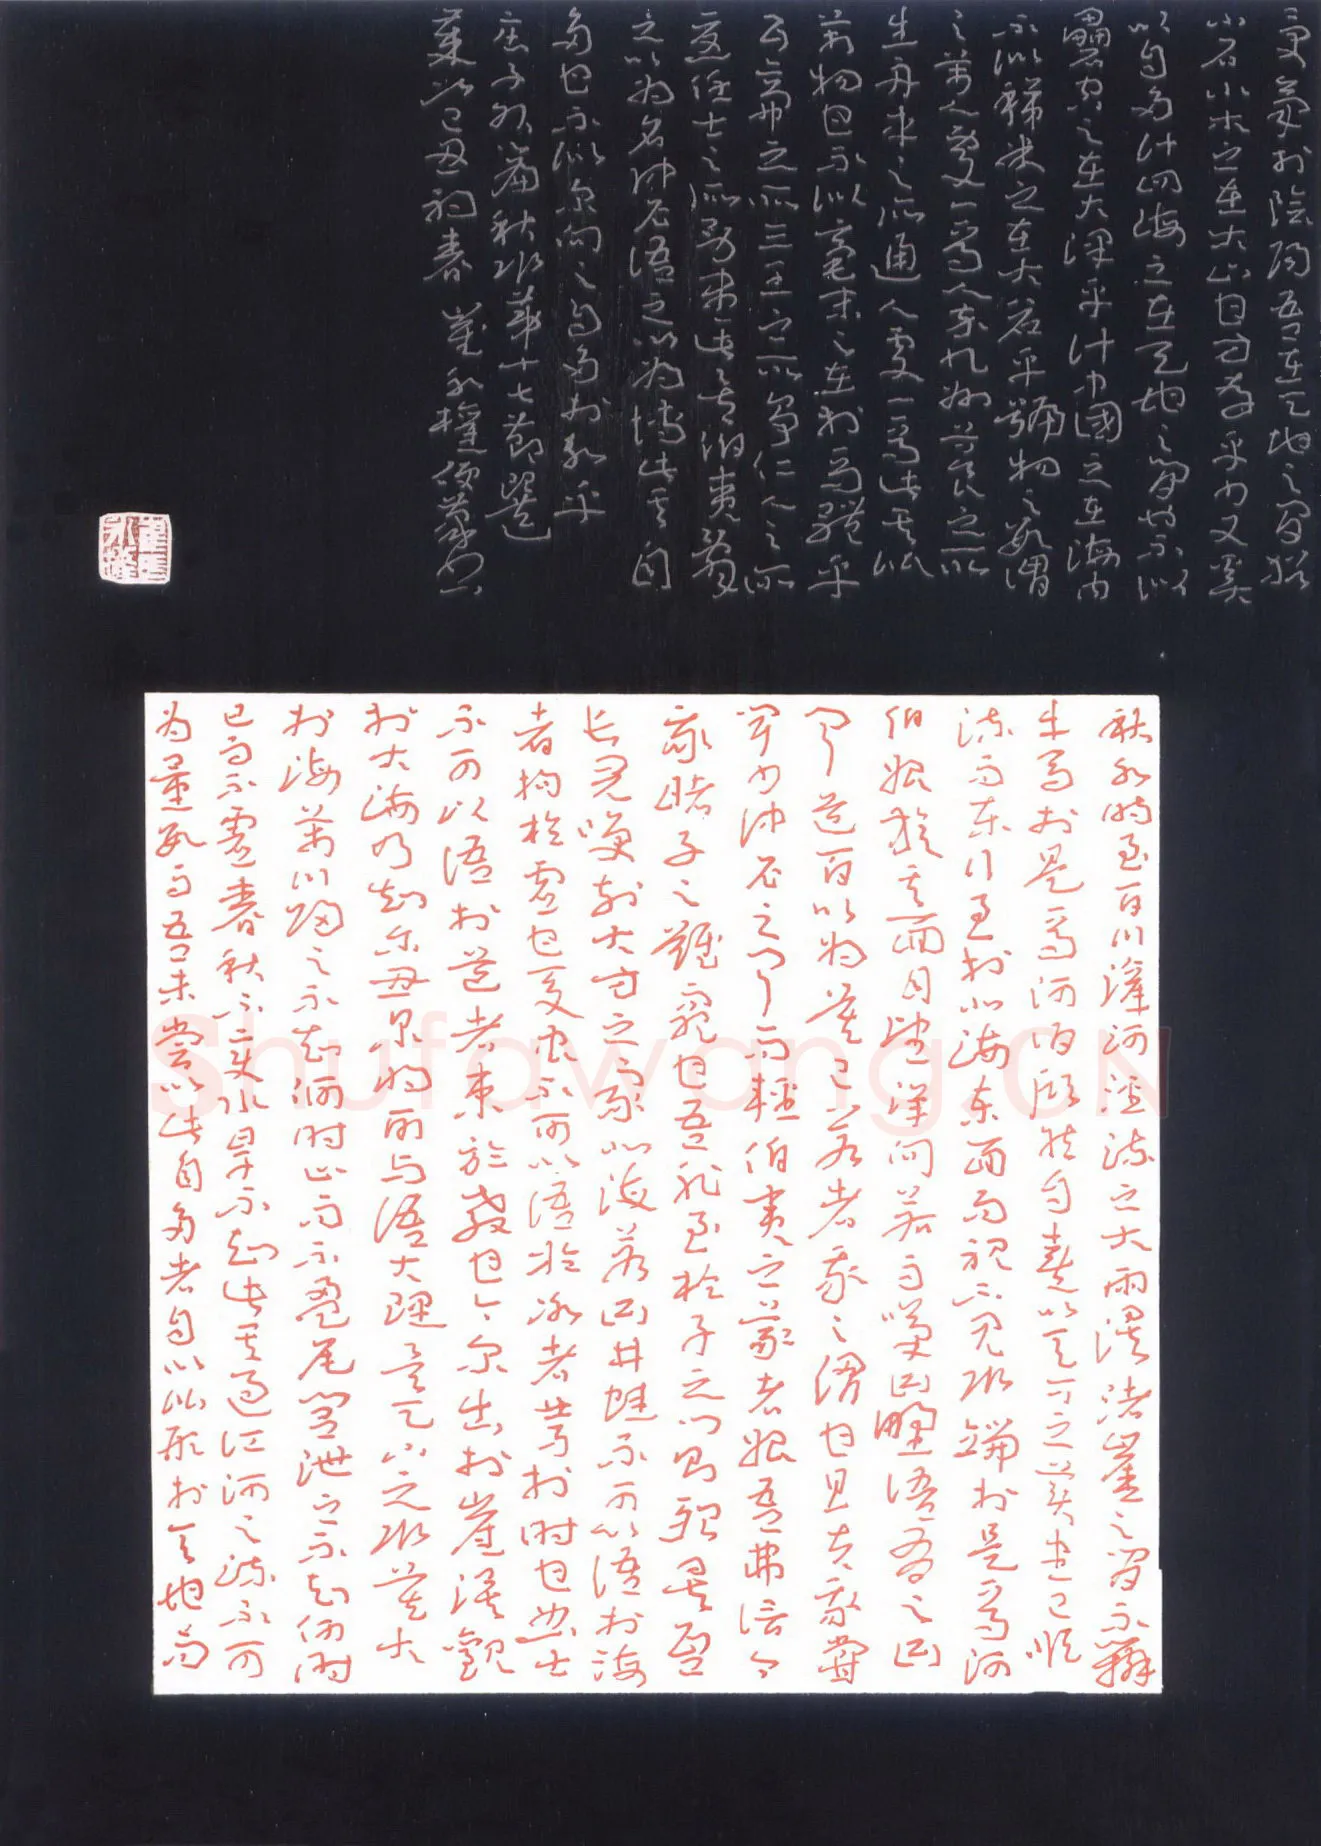 秋水時至百川灌河涇流之大兩涘渚崖之間不辯
牛馬於是焉河伯欣然自喜以天下之美盡己順
流而東行至於北海東面而視不見水端於是焉河
伯始旋其面目望洋向若而嘆曰野語有之曰
聞道百以為莫己若者我之謂也且夫我嘗
聞少仲尼之聞而輕伯夷之義者始吾弗信今
我睹子之難窮也吾非至於子之門則殆矣吾
長見嘆於大方之家北海若曰井蛙不可以語於海
者拘於虛也夏蟲不可以語於冰者篤於時也曲士
不可以語於道者束於教也今爾出於崖涘觀
於大海乃知爾醜爾將可與語大理矣天下之水莫大
於海萬川歸之不知何時止而不盈尾閭泄之不知何時
已而不虛春秋不變水旱不知此其過江河之流不可
為量數而吾未嘗以此自多者自以比形於天地而
受氣於陰陽吾在天地之間猶
小石小木之在大山也方存乎少又奚
以自多計四海之在天地之間也不似
礨空之在大澤乎計中國之在海內
不似稊米之在大倉乎號物之數謂
之萬人處一焉人卒九州穀食之所
生舟車之所通人處一焉此其比
萬物也不似毫末之在於馬體乎
五帝之所三王之所爭仁人之所
憂任士之所勞盡此矣伯夷辭
之以為名仲尼語之以為博此其自
多也不似爾向之自多於水乎
莊子外篇秋水第十七節選
歲次己丑初春
Shufawang.CN